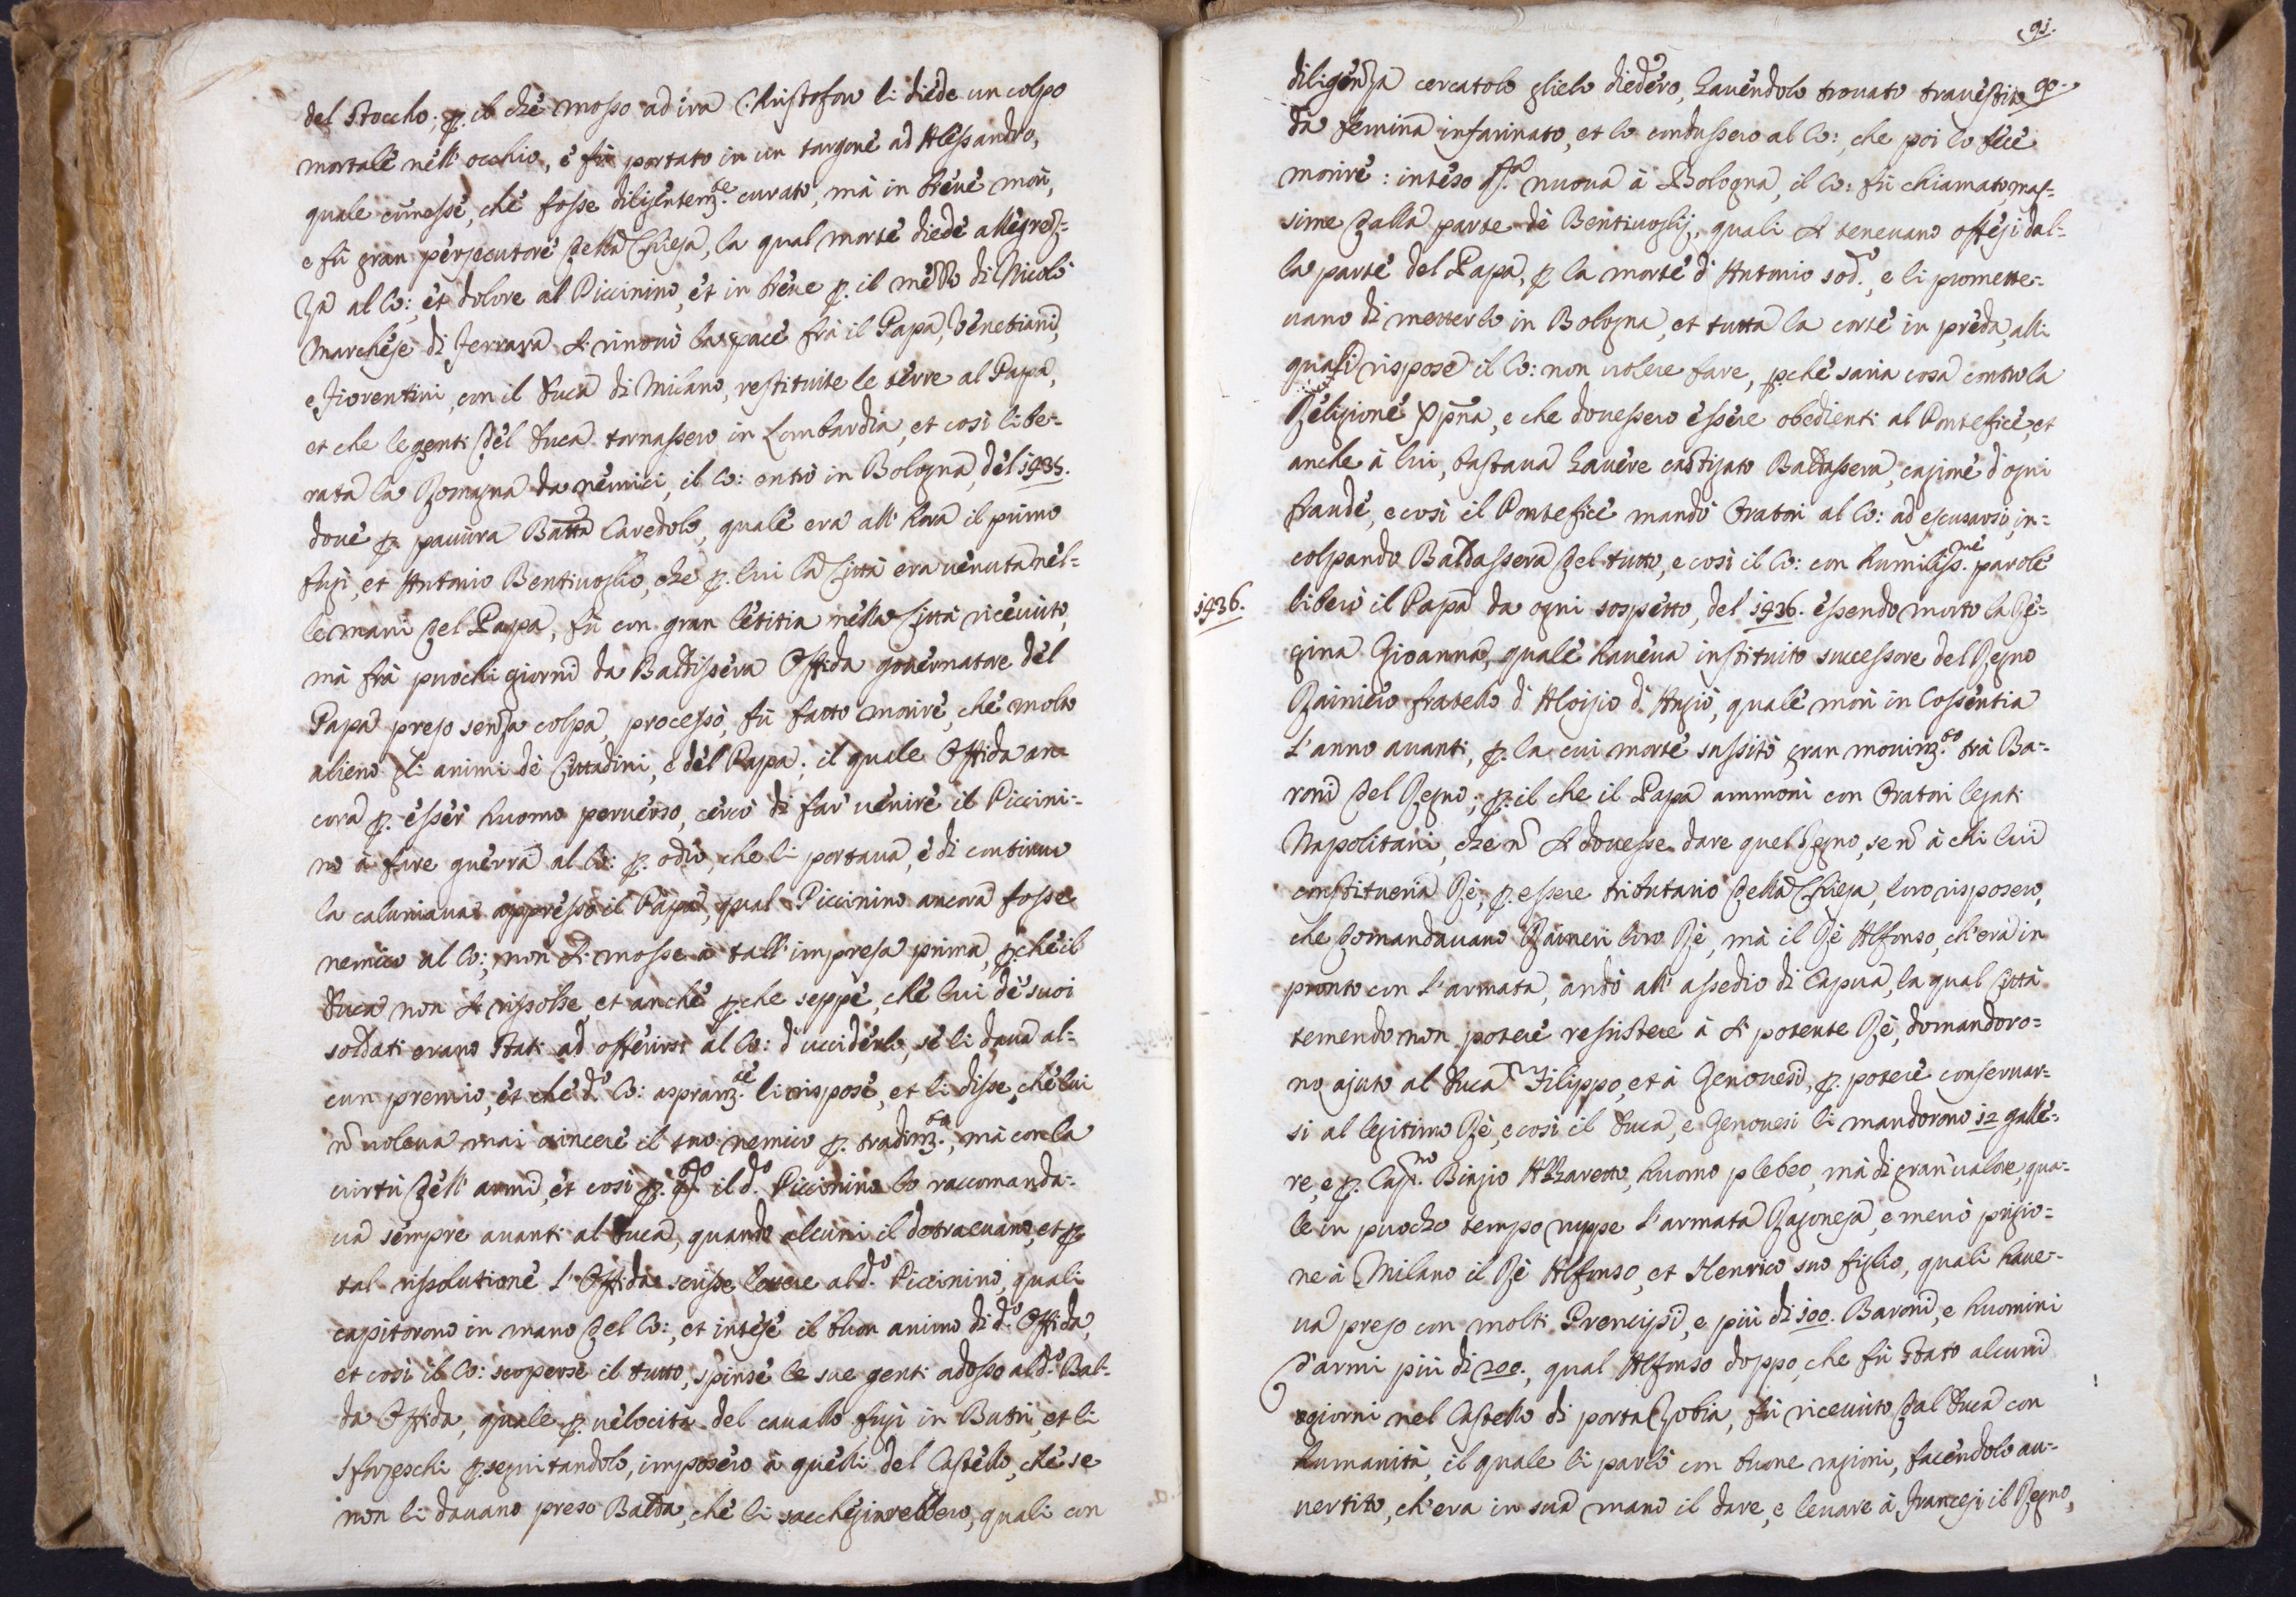 del Stoccho; p. il che mosso ad ira Christofow li diede un colpo
mortale nell'occhio, è fù portato in un targone ad Alessandro,
quale cũmesse, che fosse diligentemẽ.te curato, mà in breve morì,
e fù gran persecutore della Chiesa, la qual morte diede allegrez=
za al Co:, et dolore al Piccinino, et in breue p. il mezzo di Nicolò
Marchese di Ferrara si rinouò la pace frà il Papa, Venetiani,
e Fiorentini, con il Duca di Milano, restituite le terre al Papa,
et che le genti del Duca tornassero in Lombardia, et così libe=
rata la Romagna da nemici, il Co: entrò in Bologna, del 1435.
doue p. pauura Batta Caredolo, quale era all'hora il primo
fugì, et Antonio Bentiuoglio, che p. lui la Città era uenuta nel=
le mani del Papa, fù con gran letitia nella Città riceuuto,
mà frà puochi giorni da Baldissera Offida gouernatore del
Papa preso senza colpa, processò, fù fatto morire, che molto
alienò gli animi de Cittadini, e del Papa; il quale Offida an=
cora p. esser huomo peruerso, cercò di far uenire il Piccini=
no à fare guerra al Co: p. odio, che li portaua, è di continuo
la caluniaua appresso il Papa, qual Piccinino ancora fosse
nemico al Co:, non si mosse à tall'impresa prima, p.che il
Duca non si rissolse, et anche p.che seppe, che lui de suoi
soldati erano stati ad offerirsi al Co: d'ucciderlo, se li daua al=
cun premio, et che d.º Co: aspramẽ.te li rispose, et li disse, che lui
nõ uoleua mai uincere il suo nemico p. tradimẽ.to, mà con la
uirtù dell'armi, et così p. q.sto il d.º Piccinino lo raccomanda=
ua sempre auanti al Duca, quando alcuni il detraeuano, et p.
tal rissolutione l'Offida scrisse lettere al d.º Piccinino, quali
capitorono in mano del Co:, et intese il buon animo di d.º Offida,
et così il Co: scoperse il tutto, spinse le sue genti adosso al d.º Bal=
da Offida, quale p. uelocità del cauallo fugì in Butri, et li
Sforzeschi p.seguitandolo, imposero à quelli del Castello, che se
non li dauano preso Balda, che li sacchegiarebbero, quali con
91.
diligenza cercatolo glielo diedero, hauendolo trouato trauestito 90.
da femina infarinato, et lo condussero al Co:, che poi lo fece
morire: inteso q.sta nuoua à Bologna, il Co: fù chiamato, mas=
sime dalla parte de Bentiuoglij, quali si teneuano offesi dal=
la parte del Papa, p. la morte d'Antonio sod.º, e li promette=
uano di metterlo in Bologna, et tutta la corte in preda, alli
quali rispose il Co: non uolere fare, p.che saria cosa contro la
Religione Xp̃na, e che douessero essere obedienti al Pontefice, et
anche à lui, bastaua hauere castigato Baldassera, cagione d'ogni
fraude, e così il Pontefice mandò Oratori al Co: ad escusarsi, in=
colpando Baldassera del tutto, e così il Co: con humiliss.me parole
1436.
liberò il Papa da ogni sospetto, del 1436. essendo morto la Re=
gina Gioanna, quale haueua instituito successore del Regno
Rainiero fratello d'Aloisio d'Angiò, quale morì in Cossentia
l'anno auanti, p. la cui morte sussitò gran mouimẽ.to trà Ba=
roni del Regno; p. il che il Papa ammonì con Oratori legati
Napolitani, che nõ si douesse dare quel Regno, se nõ à chi lui
constitueria Rè, p. essere tributario della Chiesa, loro risposero,
che domandauano Raineri loro Rè, mà il Rè Alfonso, ch'era in
pronto con l'armata, andò all'assedio di Capua, la qual Città
temendo non potere ressistere à si potente Rè, domandoro=
no ajuto al Duca Filippo, et à Genouesi, p. potere conseruar=
si al legitimo Rè, e così il Duca, e Genouesi li mandorono 12 galle=
re, e p. Cap.no Biagio Azzaretto, huomo plebeo, mà di gran ualore, qua=
le in puocho tempo ruppe l'armata Ragonesa, e menò prigio=
ne à Milano il Rè Alfonso, et Henrico suo figlio, quali haue=
ua preso con molti Prencipi, e più di 100. Baroni, e huomini
d'armi più di 200., qual Alfonso doppo, che fù stato alcuni
giorni nel Castello di porta Zobia, fù riceuuto dal Duca con
humanità, il quale li parlò con buone ragioni, facendolo au=
uertito, ch'era in sua mano il dare, e leuare à Francesi il Regno,